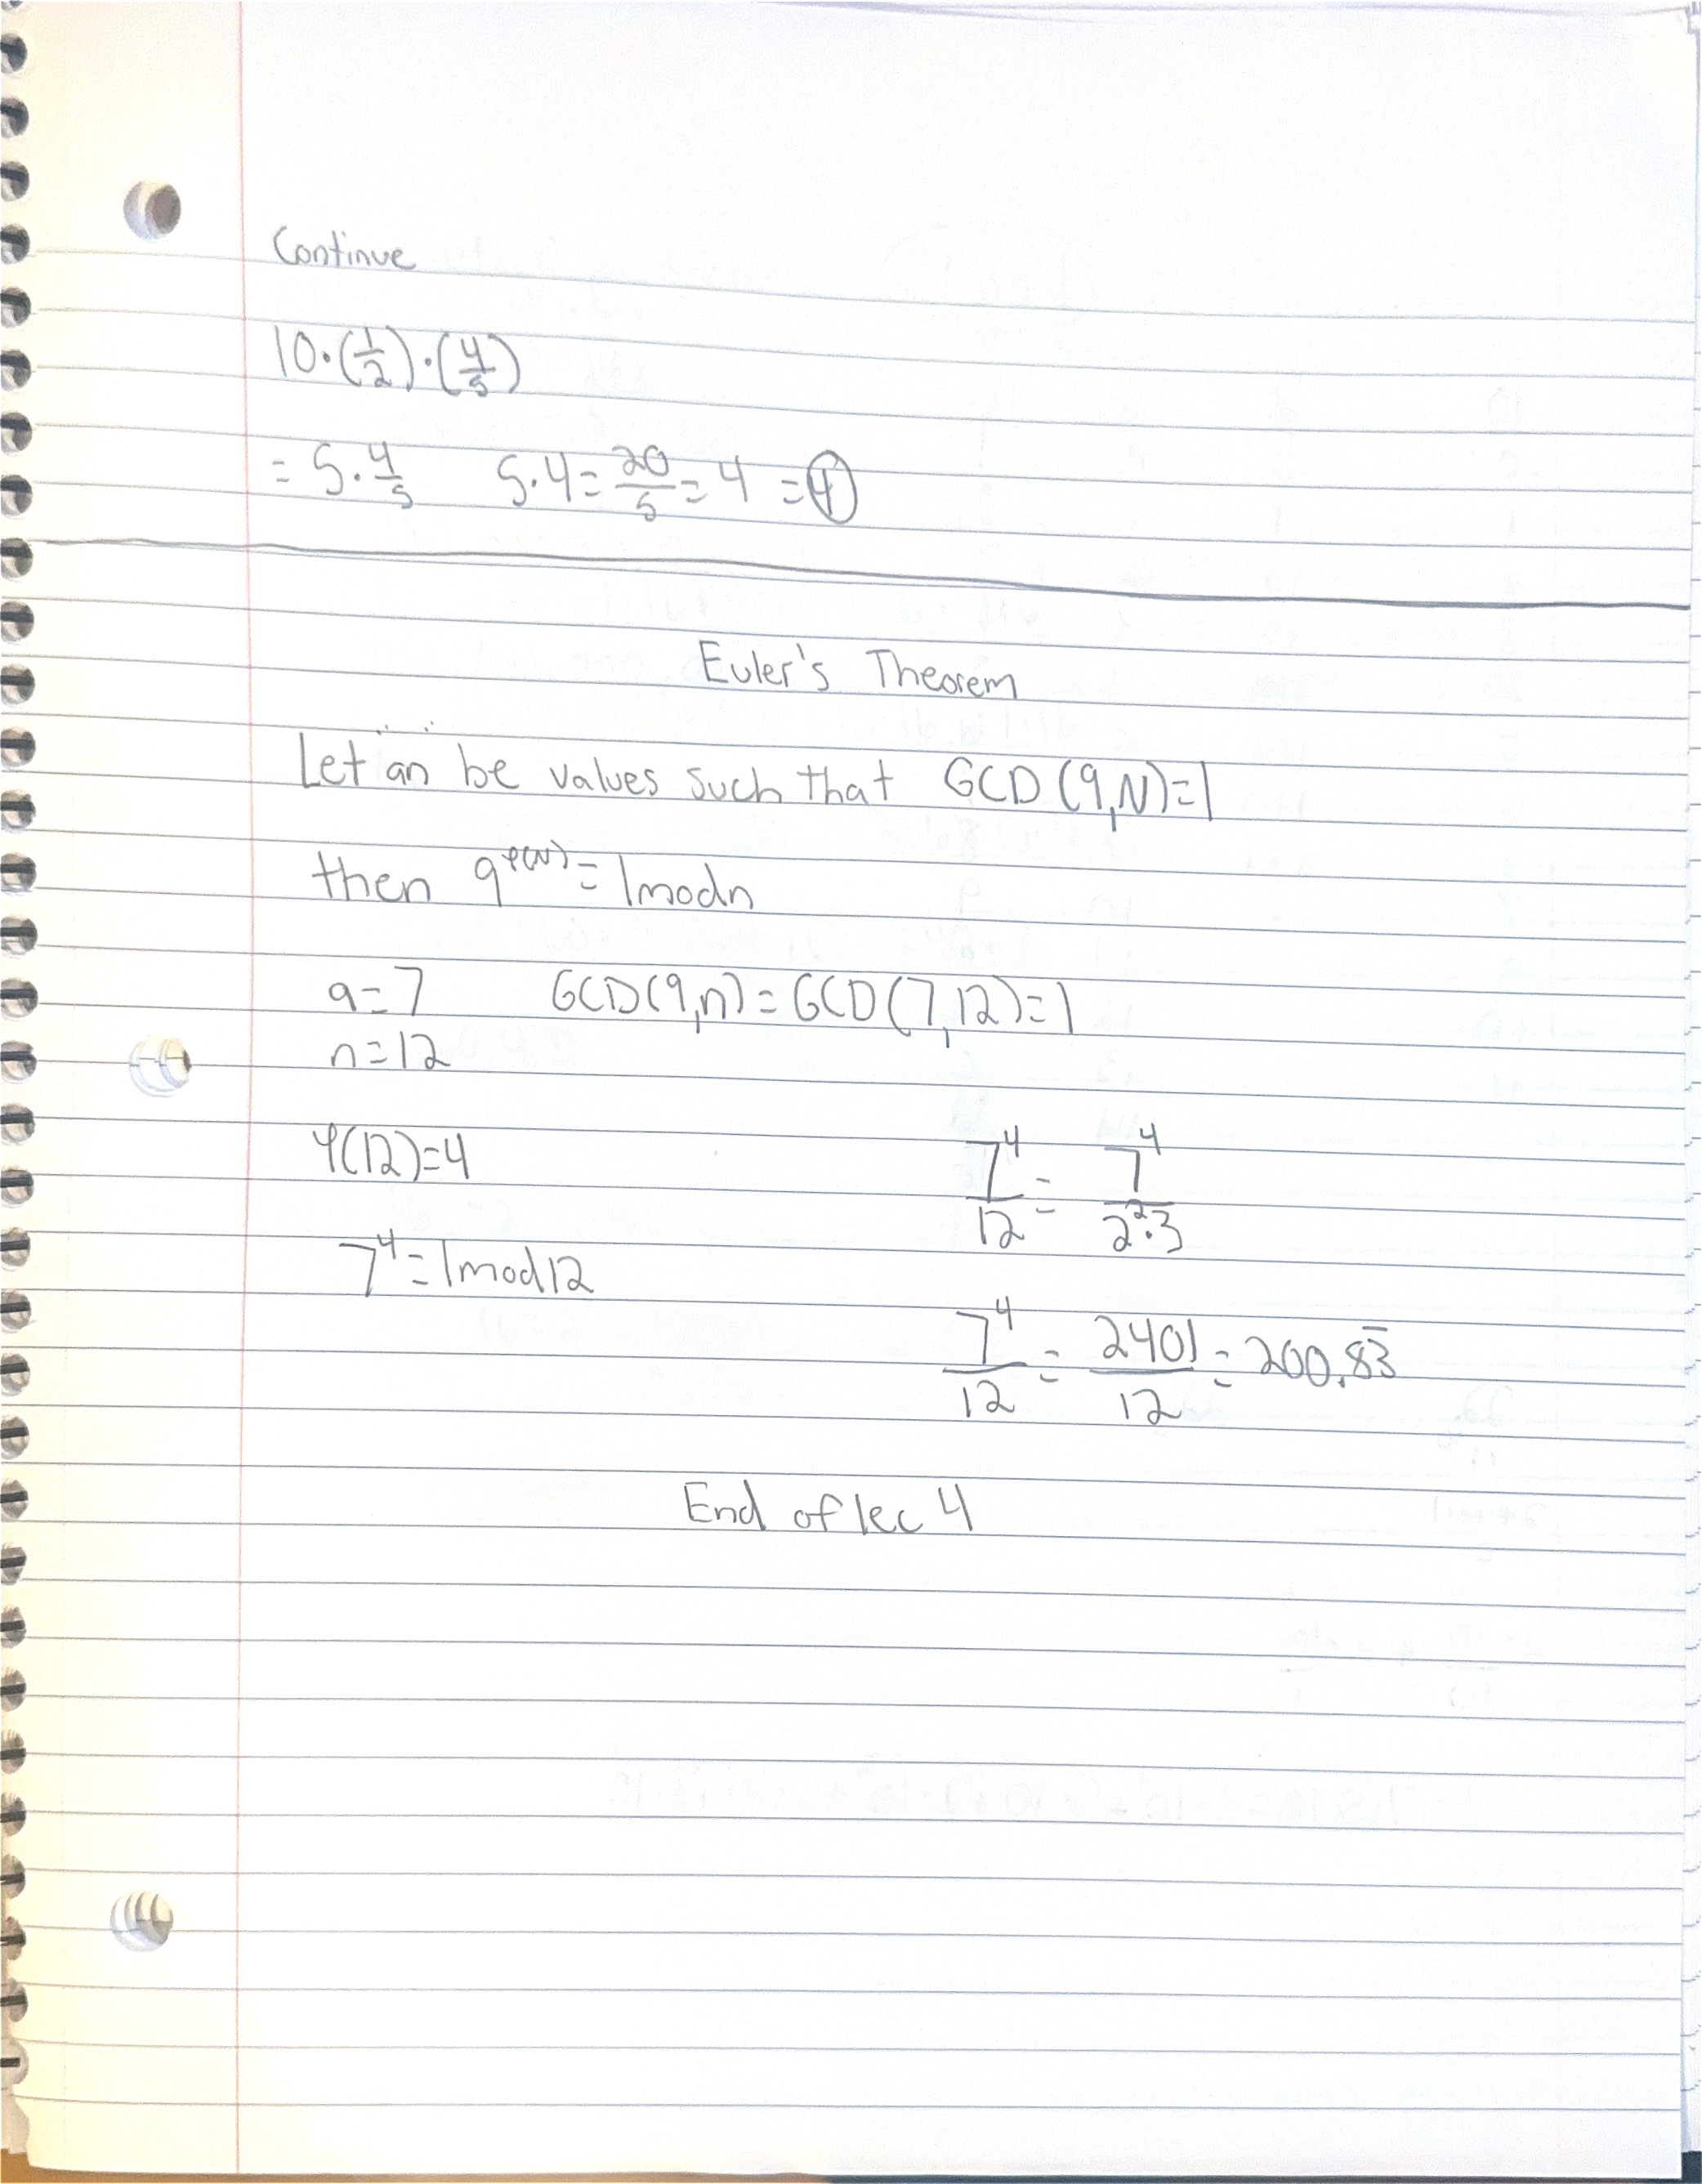 Continue
10·(1/2)·(4/5)
= 5·4/5   5·4=20/5=4 =4
Euler's Theorem
Let an be values such that GCD(a,N)=1
then a^φ(N)=1modn
a=7   GCD(a,n)=GCD(7,12)=1
n=12
φ(12)=4   7^4/12 = 7^4/2^2·3
7^4=1mod12
7^4/12 = 2401/12 = 200.83̅
End of lec 4